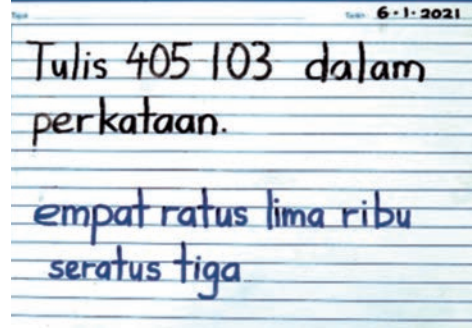 6.1.2021
Tulis 405 103 dalam
perkataan.
empat ratus lima ribu
seratus tiga